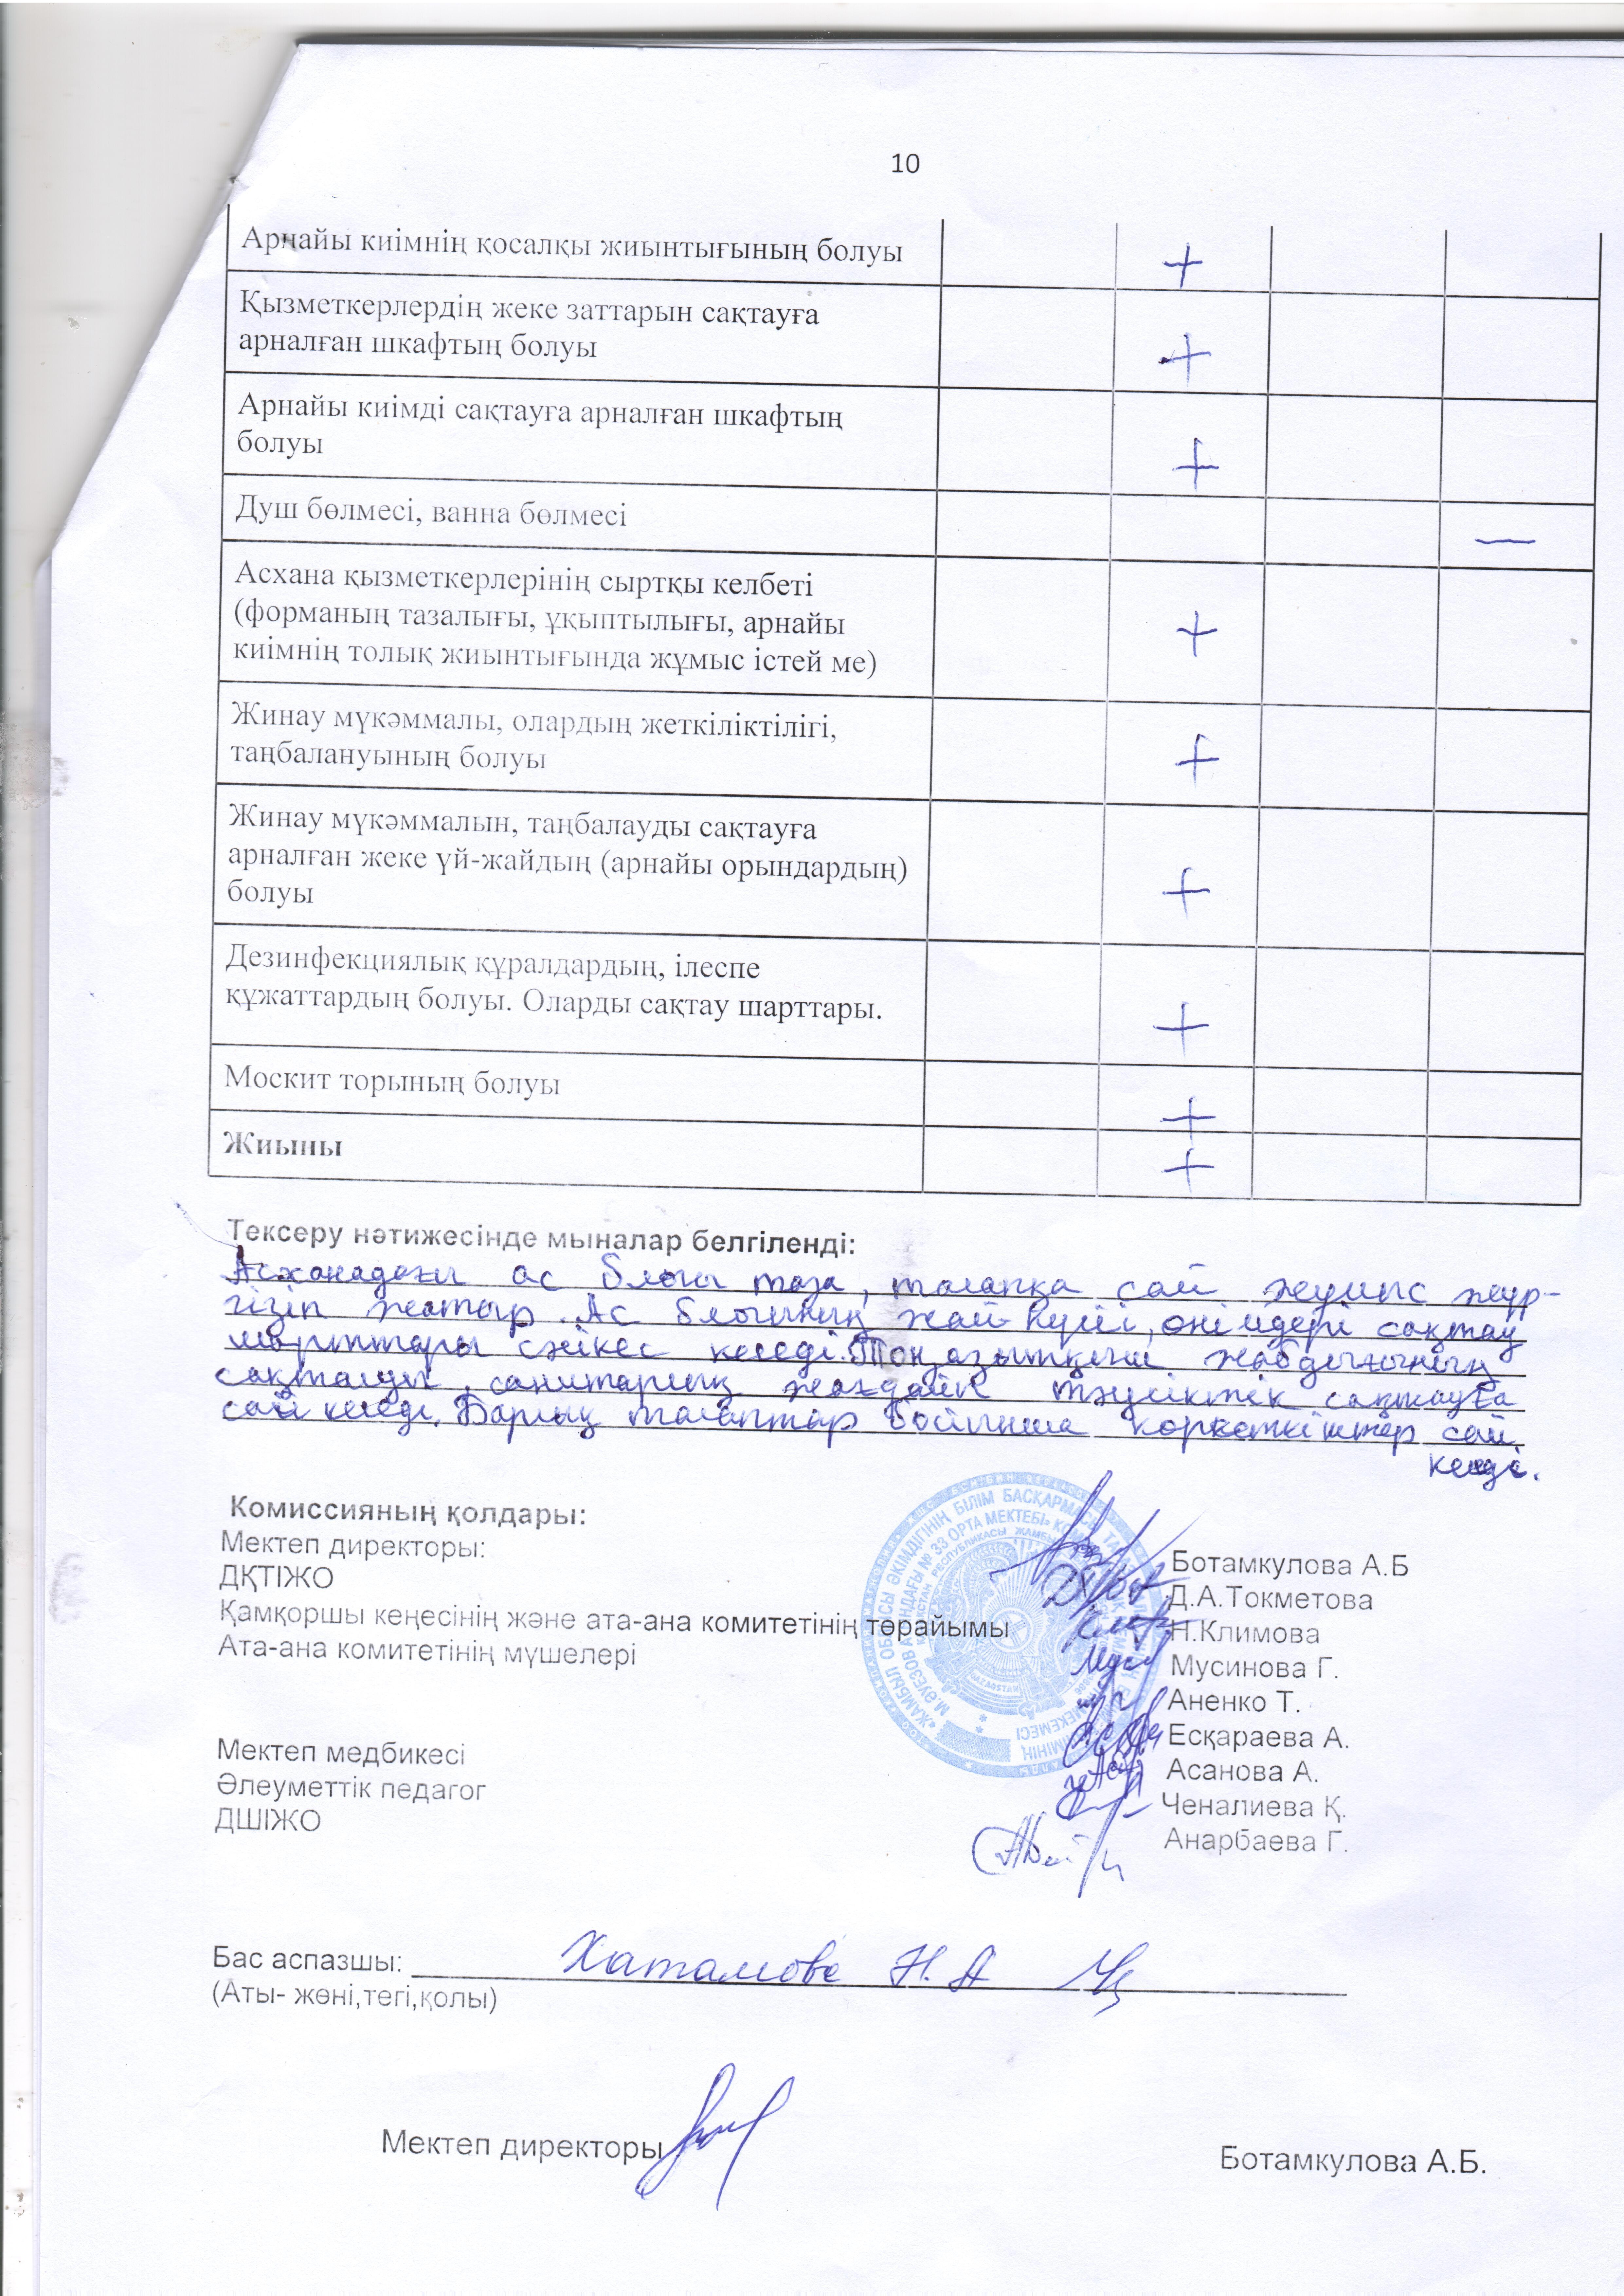 10
Арнайы киімнің қосалқы жиынтығының болуы +
Қызметкерлердің жеке заттарын сақтауға
арналған шкафтың болуы +
Арнайы киімді сақтауға арналған шкафтың
болуы +
Душ бөлмесі, ванна бөлмесі —
Асхана қызметкерлерінің сыртқы келбеті
(форманың тазалығы, ұқыптылығы, арнайы +
киімнің толық жиынтығында жұмыс істей ме)
Жинау мүкәммалы, олардың жеткіліктілігі,
таңбалануының болуы +
Жинау мүкәммалын, таңбалауды сақтауға
арналған жеке үй-жайдың (арнайы орындардың)
болуы +
Дезинфекциялық құралдардың, ілеспе
құжаттардың болуы. Оларды сақтау шарттары. +
Москит торының болуы +
Жиыны +
Тексеру нәтижесінде мыналар белгіленді:
Асханадағы ас блогы таза, талапқа сай жұмыс жүр-
гізіп жатыр. Ас блогының жай-күйі, өнімдері сақтау
шарттары сәйкес келеді. Тоңазытқыш жабдығының
сақталуы, санитарлық тәуліктік сақтауға
сай келеді. Барлық талаптар бойынша көрсеткіштер сай
келді.
Комиссияның қолдары:
Мектеп директоры: Ботамкулова А.Б
ДҚТІЖО Д.А.Токметова
Қамқоршы кеңесінің және ата-ана комитетінің төрайымы Н.Климова
Ата-ана комитетінің мүшелері Мусинова Г.
Аненко Т.
Есқараева А.
Мектеп медбикесі Асанова А.
Әлеуметтік педагог Ченалиева Қ.
ДШІЖО Анарбаева Г.
Бас аспазшы: Хатамова Н.А
(Аты- жөні,тегі,қолы)
Мектеп директоры Ботамкулова А.Б.